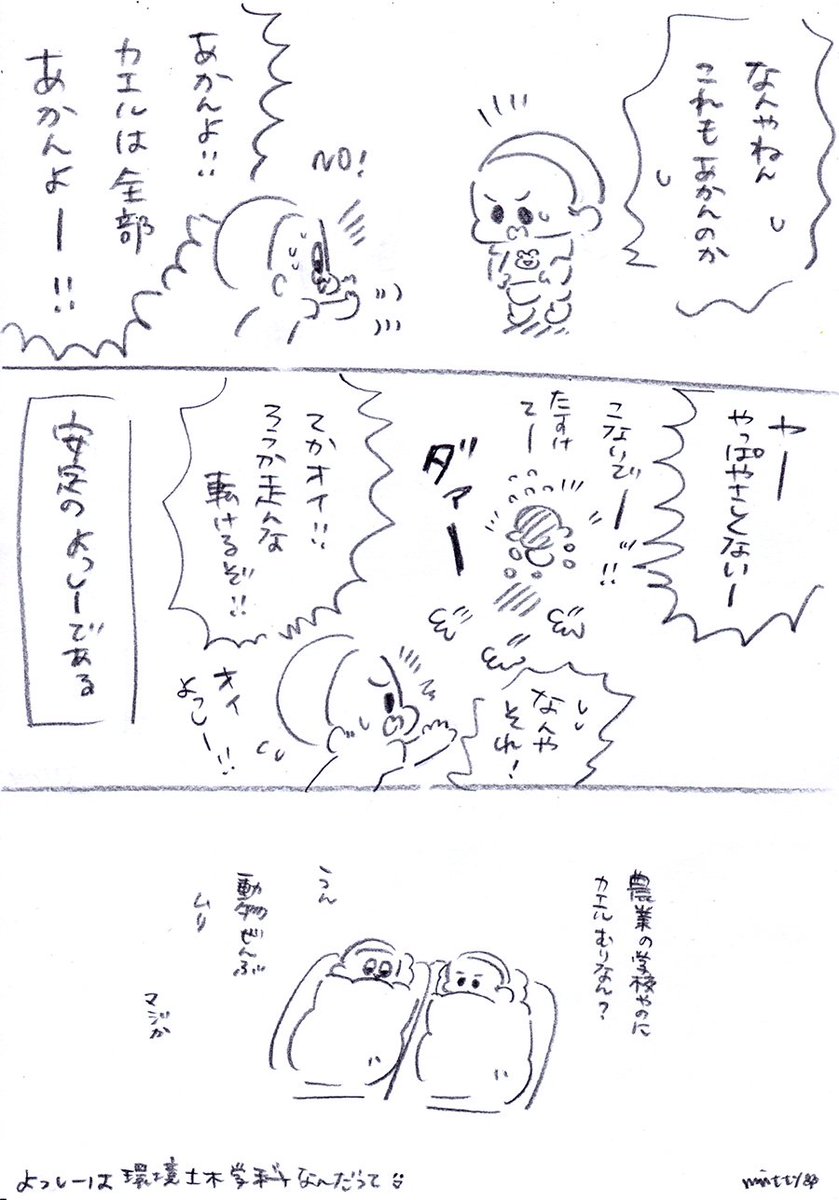 なんやねん
これもあかんのか
NO!
あかんよ!!
カエルは全部
あかんよー!!
やー
やっぱやさしくないー
こないでー!!
たすけ
てー
ダァー
なんや
それ!
てかオイ!!
ろうか走んな
転けるぞ!!
オイ
よっしー!!
安定のよっしーである
農業の学校やのに
カエルむりなん?
うん
動物ぜんぶ
ムリ
マジか
よっしーは環境土木学科なんだって